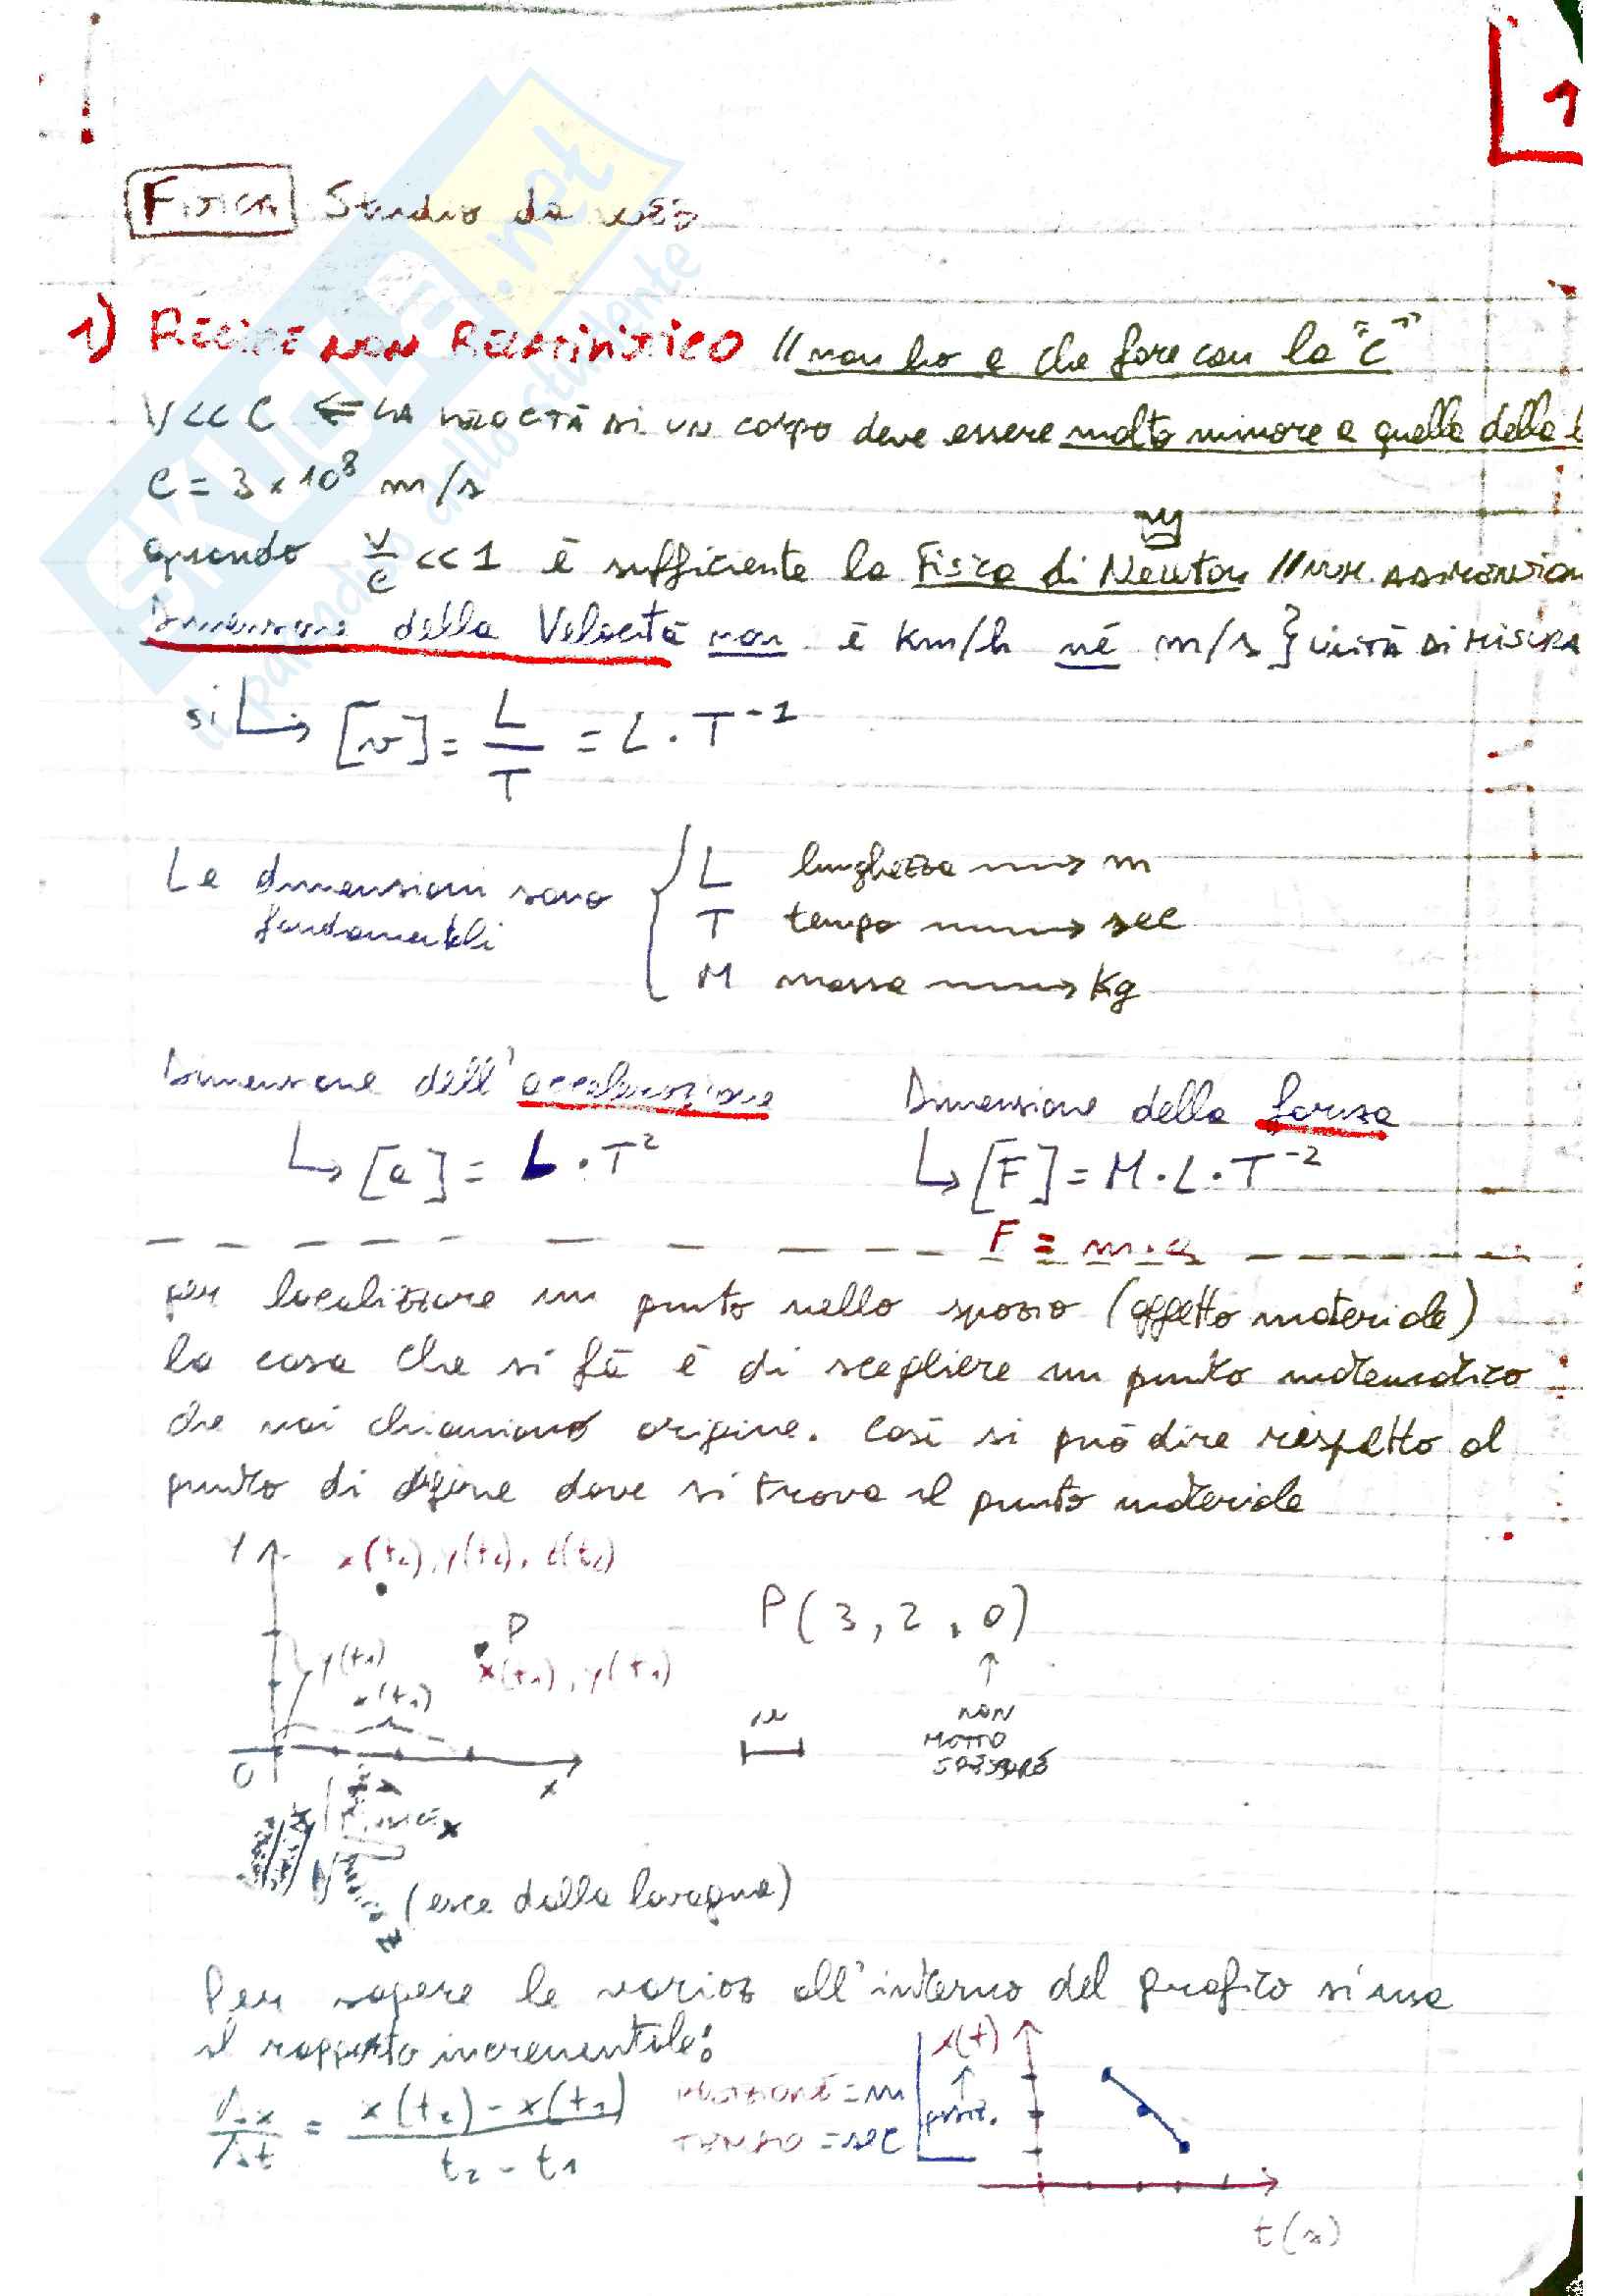 1
Fisica Studio da web
1) REGIME NON RELATIVISTICO // non ho a che fare con la "c"
V << C ⇐ LA VELOCITÀ DI UN corpo deve essere molto minore a quella della
C = 3 x 10⁸ m/s
quando v/c << 1 è sufficiente la Fisica di Newton //
Dimensione della Velocità non è Km/h né m/s } UNITÀ DI MISURA
si ↳ [v] = L/T = L · T⁻¹
Le dimensioni sono fondamentali
L lunghezza → m
T tempo → sec
M massa → Kg
Dimensione dell'accelerazione
↳ [a] = L · T²
Dimensione della forza
↳ [F] = M · L · T⁻²
F = m · a
per localizzare un punto nello spazio (oggetto materiale)
la cosa che si fà è di scegliere un punto matematico
che noi chiamiamo origine. Così si può dire rispetto al
punto di origine dove si trova il punto materiale
Y x(t₂), y(t₂), z(t₂)
P
P(3, 2, 0)
y(t₁)
x(t₁)
x(t₁), y(t₁)
NON
MOTTO
O x
x
z (esce dalla lavagna)
Per sapere la varioz all'interno del grafico si usa
il rapporto incrementale:
Δx/Δt = x(t₂) - x(t₁) / t₂ - t₁
= m
TEMPO = sec
x(t)
↑
posiz.
t(s)